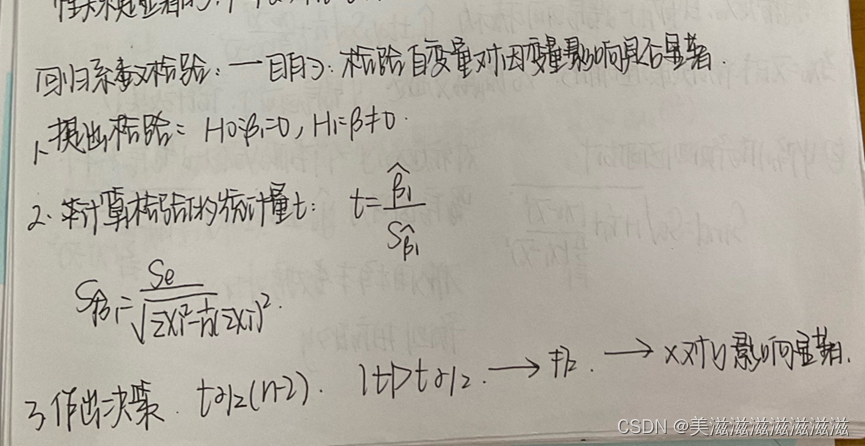 回归系数检验:→目的:检验自变量对因变量影响是否显著.
1、提出检验:H0:β1=0,H1=β≠0.
2.计算检验的统计量t: t=β̂1/Sβ̂1
Sβ̂1=Se/√Σxi²-1/n(Σxi)².
3、作出决策. tα/2(n-2). |t|>tα/2. → 拒. → x对y影响显著.
CSDN @美滋滋滋滋滋滋滋滋